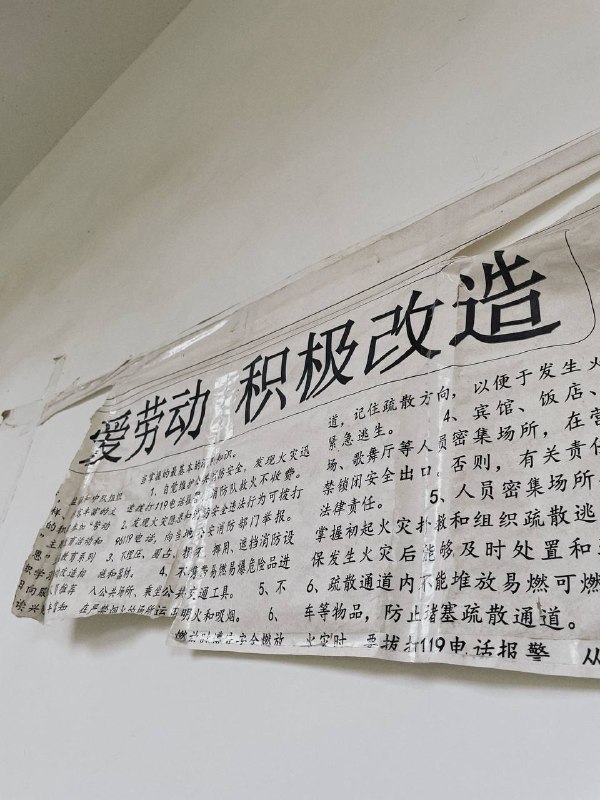 爱劳动 积极改造
掌握的最基本的消防知识。
1、自觉维护公共消防安全，发现火灾迅
速拨打119电话报警，消防队救火不收费。
2、发现火灾隐患和消防安全违法行为可拨打
电话，向当地公安消防部门举报。
3、不埋压、圈占、损坏、挪用、遮挡消防设
施和器材。 4、不携带易燃易爆危险品进
入公共场所、乘坐公共交通工具。 5、不
在严禁烟火的场所动用明火和吸烟。 6、
安全燃放
道，记住疏散方向，以便于发生火
紧急逃生。 4、宾馆、饭店、
场、歌舞厅等人员密集场所，在营
禁锁闭安全出口。否则，有关责任
法律责任。 5、人员密集场所
掌握初起火灾扑救和组织疏散逃
保发生火灾后能够及时处置和
6、疏散通道内不能堆放易燃可燃
车等物品，防止堵塞疏散通道。
火灾时，要拨打119电话报警 从